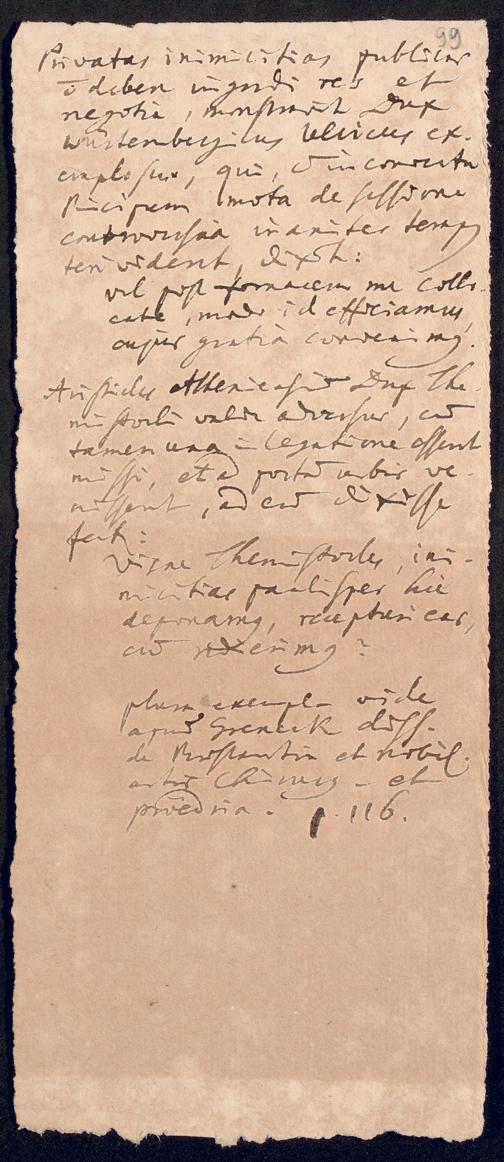 99
Privatas inimicitias publicas
ō deben ingredi res et
negotia, monstravit Dux
Würtembergicus Ulricus ex-
emplo suo, qui, cū in conventu
Principum mota de sessione
controversia inaniter temp9
teri videret, dixit:
vel post fornacem me collo-
cate, modo id efficiamus,
cujus gratia convenim9.
Aristides Atheniensiū Dux The-
mistocli valde adversus, cū
tamen una in legatione essent
missi, et ad portā urbis ve-
nissent, ad eū dixisse
fert:
Visne Themistocles, ini-
micitias paulisper hic
deponam9, recepturi eas,
cū redierim9?
plura exempla vide
apud diss.
de et nobil.
artis Chirurg. et
p. 116.